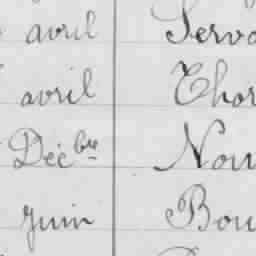 avril Serv
avril Thor
Décbre Nou
juin Bou